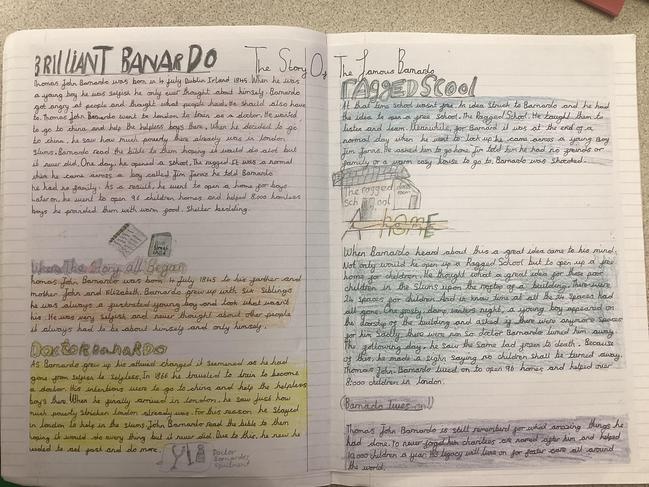 BRILLIANT BANARDO The Story Of The Famous Barnardo
Thomas John Barnardo was born in 4 July Dublin Irland 1845. When he was
a young boy he was selfish he only ever thought about himself. Barnardo
got angry at people and thought what people had. He should also have
to. Thomas John Barnardo went to london to train as a doctor. He wanted
to go to china and help the helpless boys there. When he decided to go
to china, he saw how much poverty there already was in london.
Slums. Barnardo read the bible to them hoping it would do alot but
it never did. One day, he opened a school, The ragged. It was a normal
he came across a boy called Jim Jarvis he told Barnardo
he had no family. As a result, he went to open a home for boys
Later on, he went to open 96 children homes and helped 8,000 homless
boys he provided them with warm food. Shelter bedding.
Where The Story all Began
Thomas John Barnardo was born 4 July 1845 to his father and
mother John and Elizabeth. Barnardo grew up with six siblings
he was always a frustrated young boy and took what wasn't
his. He was very selfish and never thought about other people
it always had to be about himself and only himself.
DOCTOR BANARDO
As Barnardo grew up his attitude changed it seemed as he had
gone from selfish to selfless. In 1866 he traveled to train to become
a doctor. His intentions were to go to china and help the helpless
boys there. When he finally arrived in london, he saw just how
much poverty stricken london already was. For this reason he stayed
in london to help in the slums. John Barnardo read the bible to them
hoping it would do every thing but it never did. Due to this, he new he
needed to act fast and do more.
Doctor
Barnardos
equitment
RAGGED SCOOL
At that time school wasnt free. An idea struck to Barnardo and he had
the idea to open a free school. The Ragged School. He taught them to
listen and learn. Meanwhile, for Barnard it was at the end of a
normal day when he went to lock up he came across a young boy
Jim Jarvis. he asked him to go home. Jim told him he had no friends or
family or a warm cosy house to go to. Barnardo was shocked.
The ragged
school
HOME
When Barnardo heard about this a great idea came to his mind.
Not only would he open up a Ragged School but to open up a free
home for children. He thought what a great idea for these poor
children in the Slums upon the rooftop of a building. there were
24 spaces for children. And in know time at all the 24 spaces had
all gone. One frosty, damp winters night, a young boy appeared on
the doorstep of the building and asked if there were anymore spaces
for him. Sadly, there were non so doctor Barnardo turned him away.
The following day, he saw the same lad frozen to death. Because
of this, he made a sighn saying no children shall be turned away.
Thomas John Barnardo lived on to open 96 homes and helped over
8,000 children in london.
Barnardo Lives on!!
Thomas John Barnardo is still remembered for what amazing things he
had done. To never forget him charities are named after him and helped
10,000 children a year. His legacy will live on for foster care all around
the world.